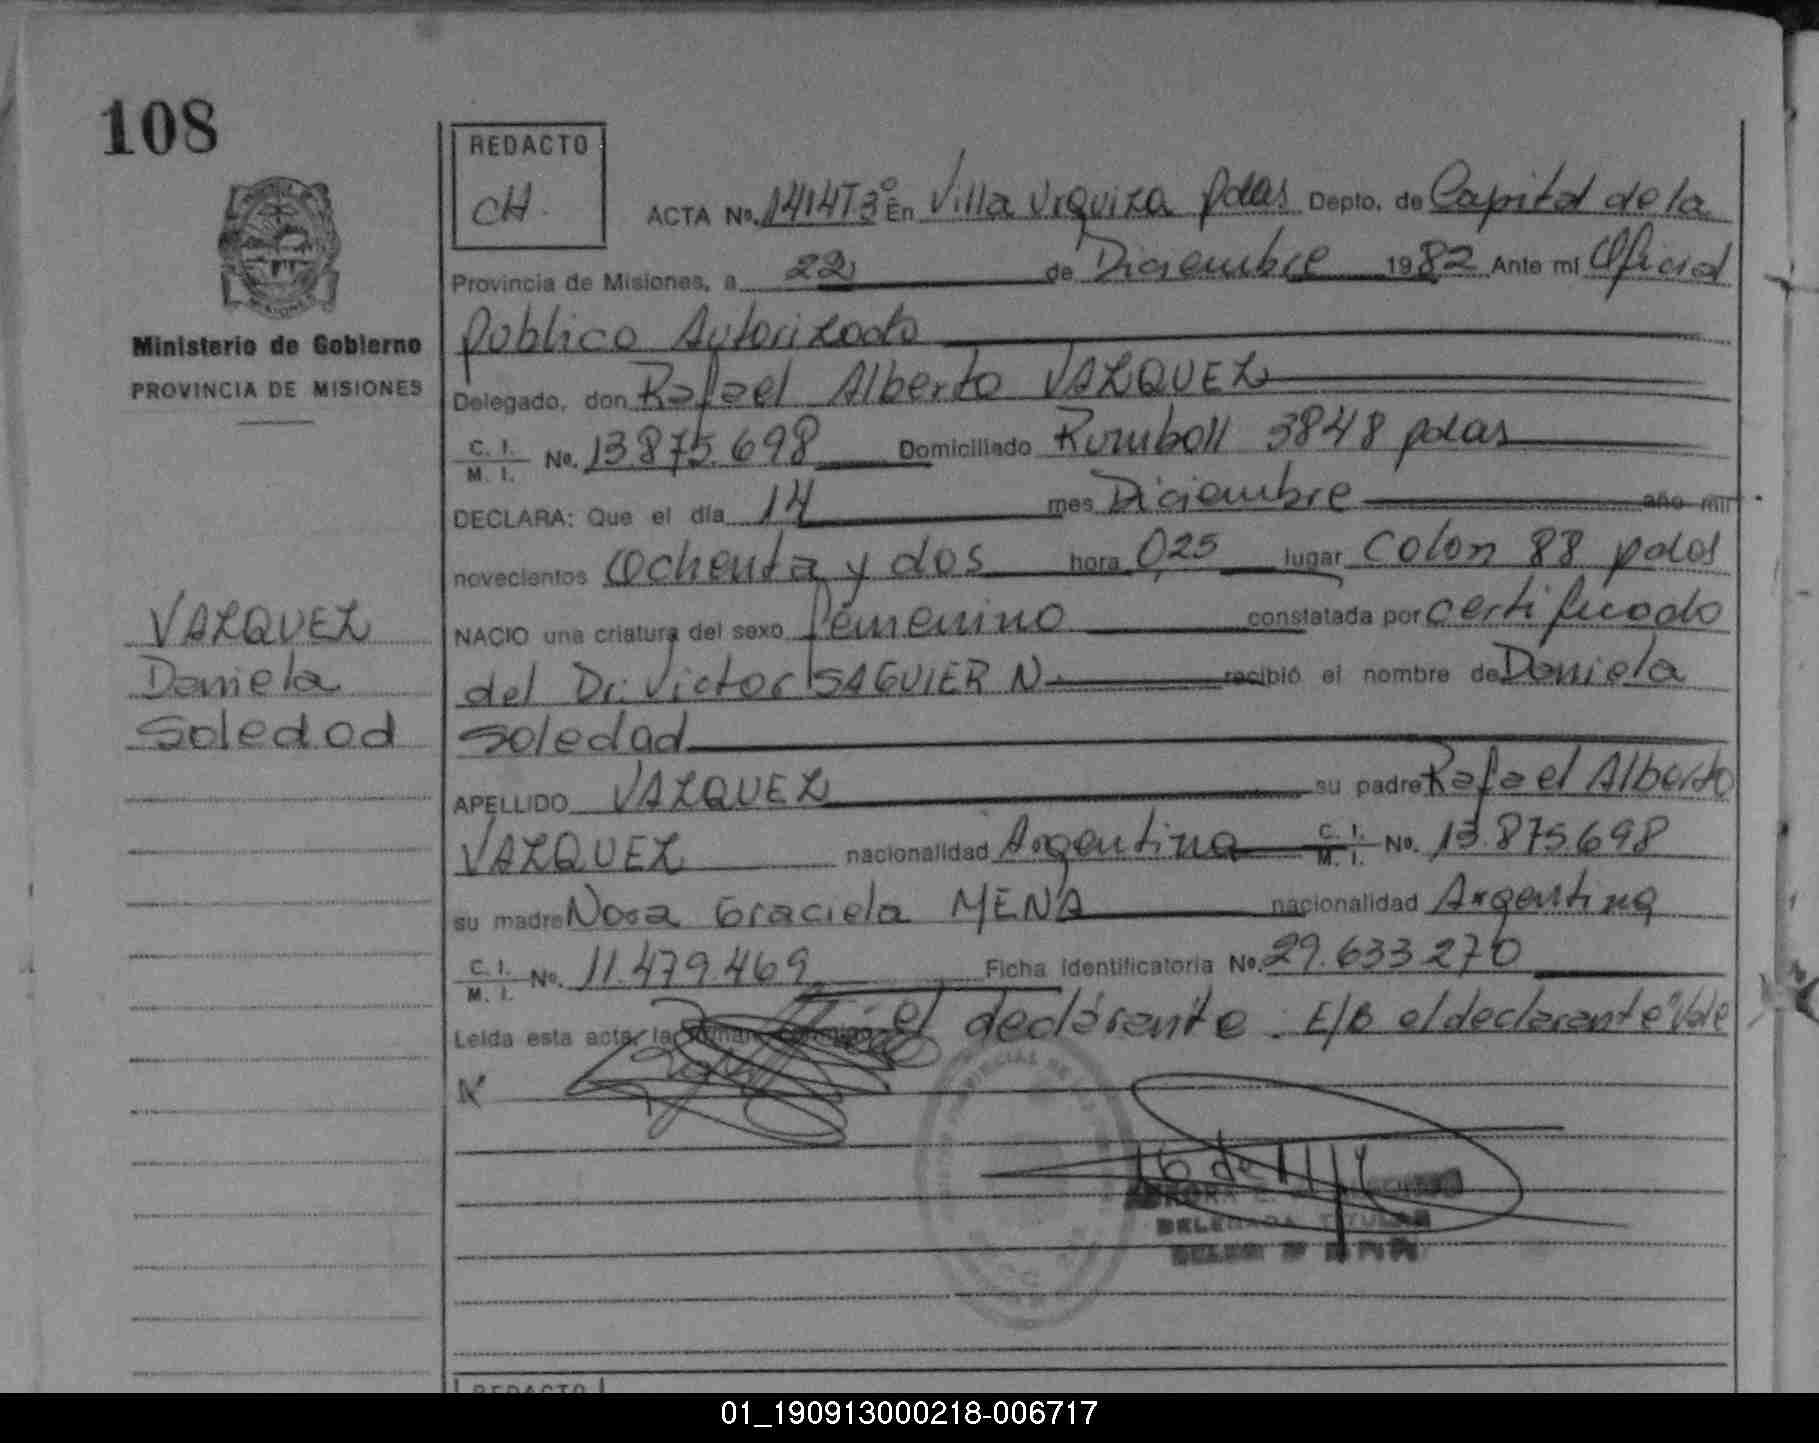 108
REDACTO
CH.
ACTA No. 1414T3º En Villa Urquiza pdas Depto. de Capital de la
Provincia de Misiones, a 22 de Diciembre 1982 Ante mi Oficial
Ministerio de Gobierno
PROVINCIA DE MISIONES
Publico Autorizado
Delegado, don Rafael Alberto VAZQUEZ
C. I. M. I. No. 13.875.698 Domiciliado 3848 pdas
DECLARA: Que el día 14 mes Diciembre año mil
novecientos ochenta y dos hora 0,25 lugar Colon 88 pdas
NACIO una criatura del sexo femenino constatada por certificado
del Dr. Victor SAGUIER N recibió el nombre de Daniela
Soledad
VAZQUEZ
Daniela
Soledad
APELLIDO VAZQUEZ su padre Rafael Alberto
VAZQUEZ nacionalidad Argentina C. I. M. I. No. 13.875.698
su madre Nora Graciela MENA nacionalidad Argentina
C. I. M. I. No. 11.479.469 Ficha Identificatoria No. 29.633.270
Leída esta acta, la el declarante. E/B el declarante Vale
DELEGADA TITULAR
REDACTO
01_190913000218-006717